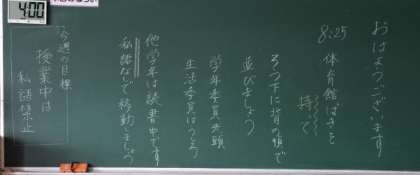 おはようございます
8:25 体育館ばきを
持って
ろう下に背の順で
並びましょう
学年委員先頭
生活委員はうしろ
他学年は読書中です
私語なしで移動しましょう
今週の目標
授業中は
私語禁止
4:00